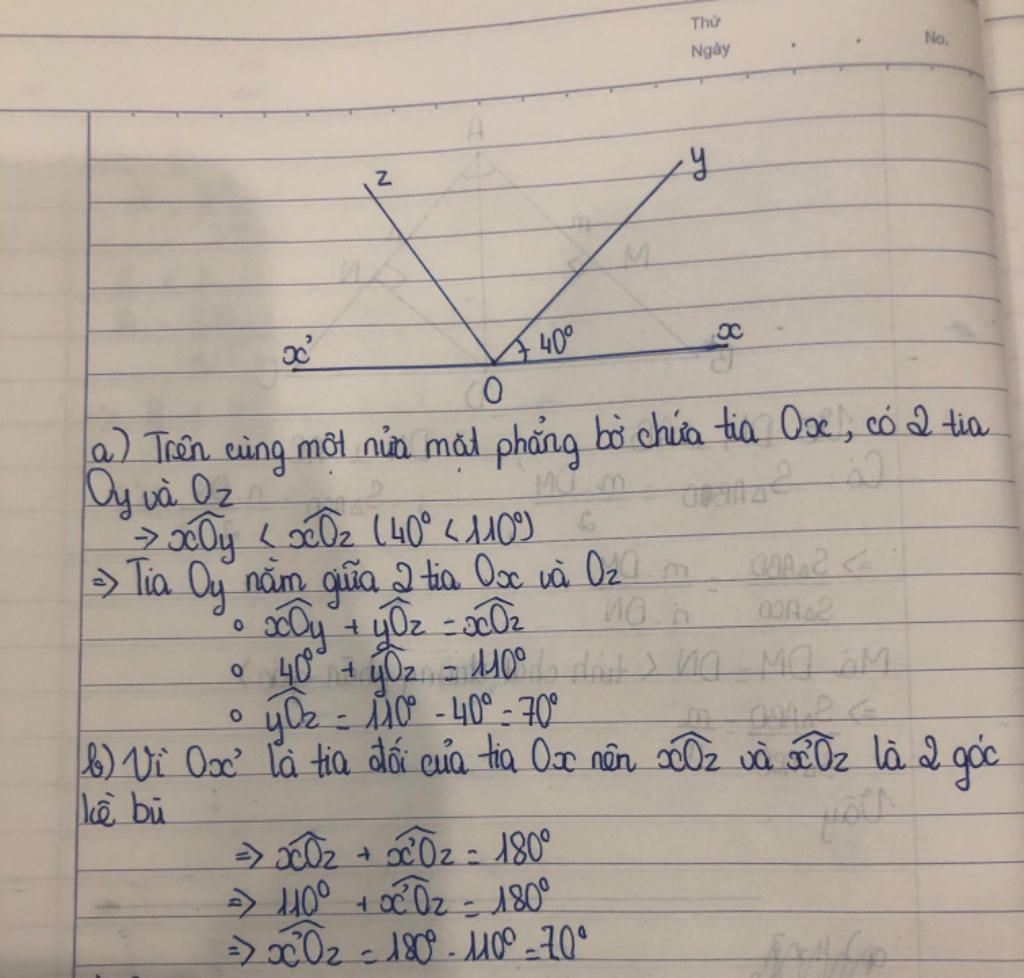 Thứ
Ngày . . No.
z
y
x'
40°
x
O
a) Trên cùng một nửa mặt phẳng bờ chứa tia Ox, có 2 tia
Oy và Oz
→ xÔy < xÔz (40° < 110°)
⇒ Tia Oy nằm giữa 2 tia Ox và Oz
∘ xÔy + yÔz = xÔz
∘ 40° + yÔz = 110°
∘ yÔz = 110° - 40° = 70°
b) Vì Ox' là tia đối của tia Ox nên xÔz và x'Ôz là 2 góc
kề bù
⇒ xÔz + x'Ôz = 180°
⇒ 110° + x'Ôz = 180°
⇒ x'Ôz = 180° - 110° = 70°